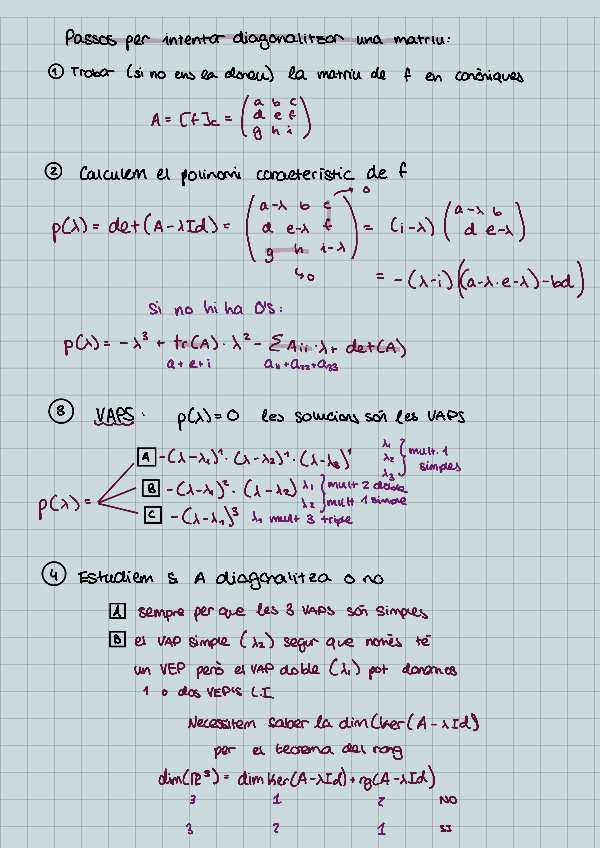 Passos per intentar diagonalitzar una matriu:
① Trobar (si no ens la donen) la matriu de f en canòniques
A = [f]c = (a b c
d e f
g h i)
② Calculem el polinomi característic de f
p(λ) = det(A-λId) = (a-λ b c → 0
d e-λ f
g h i-λ) = (i-λ) (a-λ b
d e-λ)
↳ 0
= -(λ-i)((a-λ·e-λ)-bd)
si no hi ha 0's:
p(λ) = -λ³ + tr(A)·λ² - ΣAii·λ + det(A)
a+e+i a11+a22+a33
③ VAPS: p(λ)=0 les solucions són les VAPS
p(λ) =
A -(λ-λ1)¹·(λ-λ2)¹·(λ-λ3)¹ λ1 λ2 λ3 } mult. 1 simples
B -(λ-λ1)²·(λ-λ2) λ1 } mult 2 doble
λ2 } mult 1 simple
C -(λ-λ1)³ λ1 mult 3 triple
④ Estudiem si A diagonalitza o no
A sempre per que les 3 VAPS són simples
B el VAP simple (λ2) segur que només té
un VEP però el VAP doble (λ1) pot donarnos
1 o dos VEP'S L.I.
Necessitem saber la dim(ker(A-λId)
per el teorema del rang
dim(R³) = dim Ker(A-λId)+rg(A-λId)
3 1 2 NO
3 2 1 SI